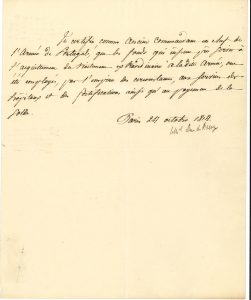 Je certifie comme ancien Commandant en chef de
l'Armée de Portugal, que les fonds qui
l'acquittement du Traitement extraordinaire à la dite Armée, ont
été employés, par l'empire des circonstances, aux services des
hôpitaux et des fortifications ainsi qu'au payement de la
solde.
Paris 24 octobre 1814.